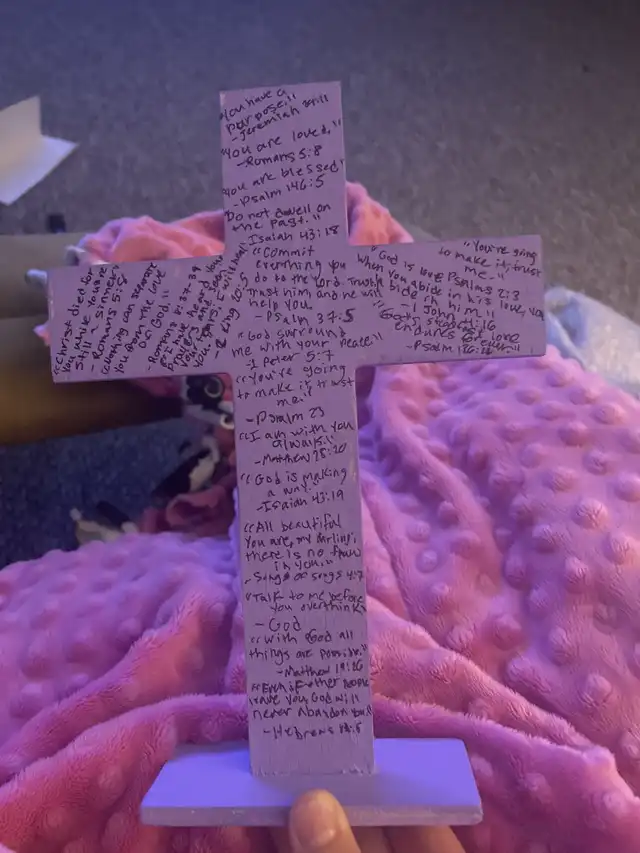 "You have a
purpose."
-Jeremiah
"You are loved."
-Romans 5:8
"You are blessed"
-Psalm 146:5
"Do not dwell on
the past."
Isaiah 43:18
"Christ died for
you while you're
still a sinner"
-Romans 5:8
"Nothing can separate
you from the love
of God."
-Romans 8:37-39
prayers and seen
your tears. I will heal
2 King 20:5
"Commit
everything you
do to the Lord. Trust
him and he will
help you."
-Psalm 37:5
"God surround
me with your peace"
-1 Peter 5:7
"You're going
to make it, trust
me."
-Psalm 23
"I am with you
always."
-Matthew 28:20
"God is making
a way."
-Isaiah 43:19
"All beautiful
you are, my darling;
there is no flaw
in you."
-Songs of songs 4:7
"Talk to me before
you overthink"
-God
"With God all
things are possible."
-Matthew 19:26
"Even if other people
leave you, God will
never abandon you"
-Hebrews 13:5
"You're going
to make it, trust
me."
Psalms 2:3
"God is love
when you abide in his love, you
bide in him"
1 John 4:16
God's steadfast love
endures forever"
-Psalm